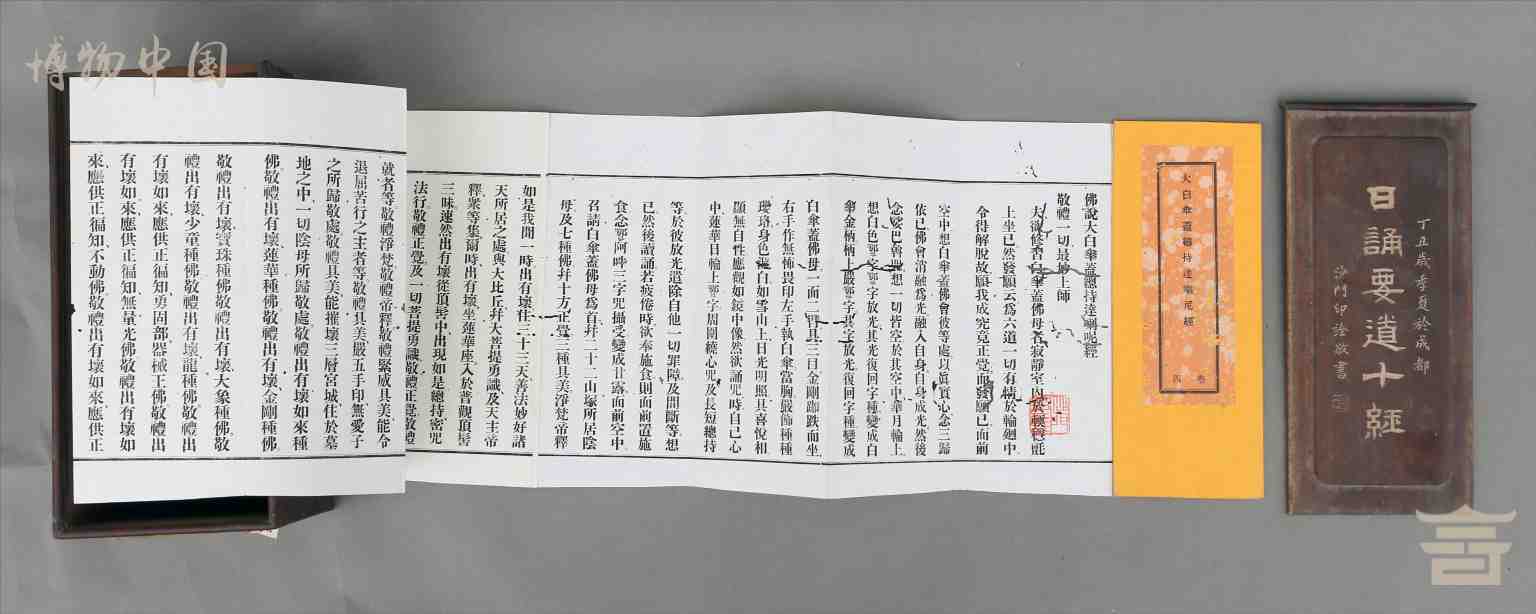 博物中国
日誦要道十經
丁丑歲季夏於成都
沙門印
敬書
大白傘蓋總持陀羅尼經
卷四
佛說大白傘蓋總持陀羅尼經
敬禮一切最妙上師
夫欲修習白傘蓋佛母者寂靜室內於
上坐已然發願云為六道一切有情於輪廻中
令得解脫故願我成究竟正覺而發願已面前
空中想白傘蓋佛會彼等處以真實心念三歸
依已佛會消融為光融入自身自身成光然後
念
想一切皆空於其空中華月輪上
想白色
字放光其光復回字種變成白
傘金柄柄上嚴
字其字放光復回字種變成
白傘蓋佛母一面二臂具三目金剛跏趺而坐
右手作無怖畏印左手執白傘當胸嚴飾種種
瓔珞身色潔白如雪山上日光明照具喜悅相
顯無自性應觀如鏡中像然欲誦呪時自己心
中蓮華日輪上
字周圍繞心呪及長短總持
等於彼放光遣除自他一切罪障及間斷等想
已然後讀誦若疲倦時欲奉施食則面前置施
食念
阿吽三字呪攝受變成甘露面前空中
召請白傘蓋佛母為首幷二十二山塚所居陰
母及七種佛幷十方正覺三種具美淨梵帝釋
如是我聞一時出有壞住三十三天善法妙好諸
天所居之處與大比丘幷大菩提勇識及天主帝
釋衆等集爾時出有壞坐蓮華座入於普觀頂髻
三昧速然出有壞從頂髻中出現如是總持密呪
法行敬禮正覺及一切菩提勇識敬禮正覺敬禮
就者等敬禮淨梵敬禮帝釋敬禮緊威具美能令
退屈苦行之主者等敬禮具美嚴五手印無愛子
之所歸敬處敬禮具美能摧壞三層宮城住於墓
地之中一切陰母所歸敬處敬禮出有壞如來種
佛敬禮出有壞蓮華種佛敬禮出有壞金剛種佛
敬禮出有壞寶珠種佛敬禮出有壞大象種佛敬
禮出有壞少童種佛敬禮出有壞龍種佛敬禮出
有壞如來應供正徧知勇固部器械王佛敬禮出
有壞如來應供正徧知無量光佛敬禮出有壞如
來應供正徧知不動佛敬禮出有壞如來應供正